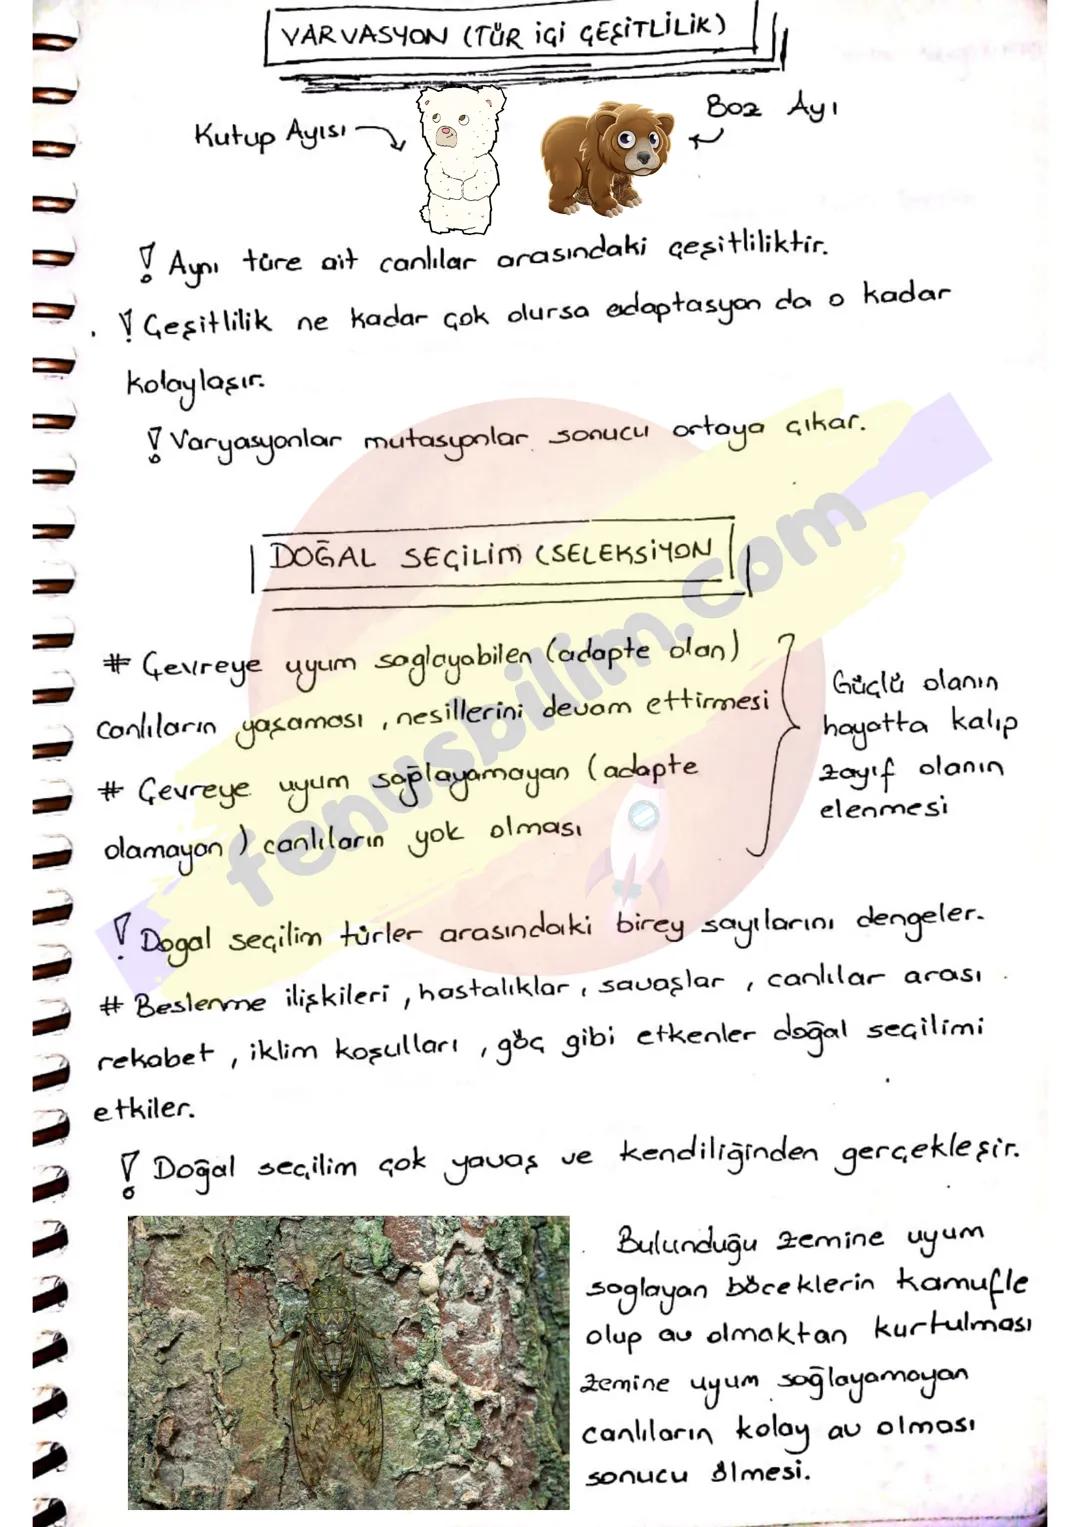 VARVASYON (TÜR İÇİ ÇEŞİTLİLİK)
Kutup Ayısı
Boz Ayı
! Aynı türe ait canlılar arasındaki çeşitliliktir.
! Çeşitlilik ne kadar çok olursa adaptasyon da o kadar
kolaylaşır.
! Varyasyonlar mutasyonlar sonucu ortaya çıkar.
DOĞAL SEÇİLİM (SELEKSİYON
# Çevreye uyum sağlayabilen (adapte olan)
canlıların yaşaması, nesillerini devam ettirmesi
# Çevreye uyum sağlayamayan (adapte
olamayan) canlıların yok olması
Güçlü olanın
hayatta kalıp
zayıf olanın
elenmesi
! Dogal seçilim türler arasındaki birey sayılarını dengeler.
# Beslenme ilişkileri, hastalıklar, savaşlar, canlılar arası
rekabet, iklim koşulları, göç gibi etkenler doğal seçilimi
etkiler.
! Doğal seçilim çok yavaş ve kendiliğinden gerçekleşir.
Bulunduğu zemine uyum
soglayan böceklerin kamufle
olup av olmaktan kurtulması
zemine uyum sağlayamayan
canlıların kolay av olması
sonucu ölmesi.
fenusbilim.com